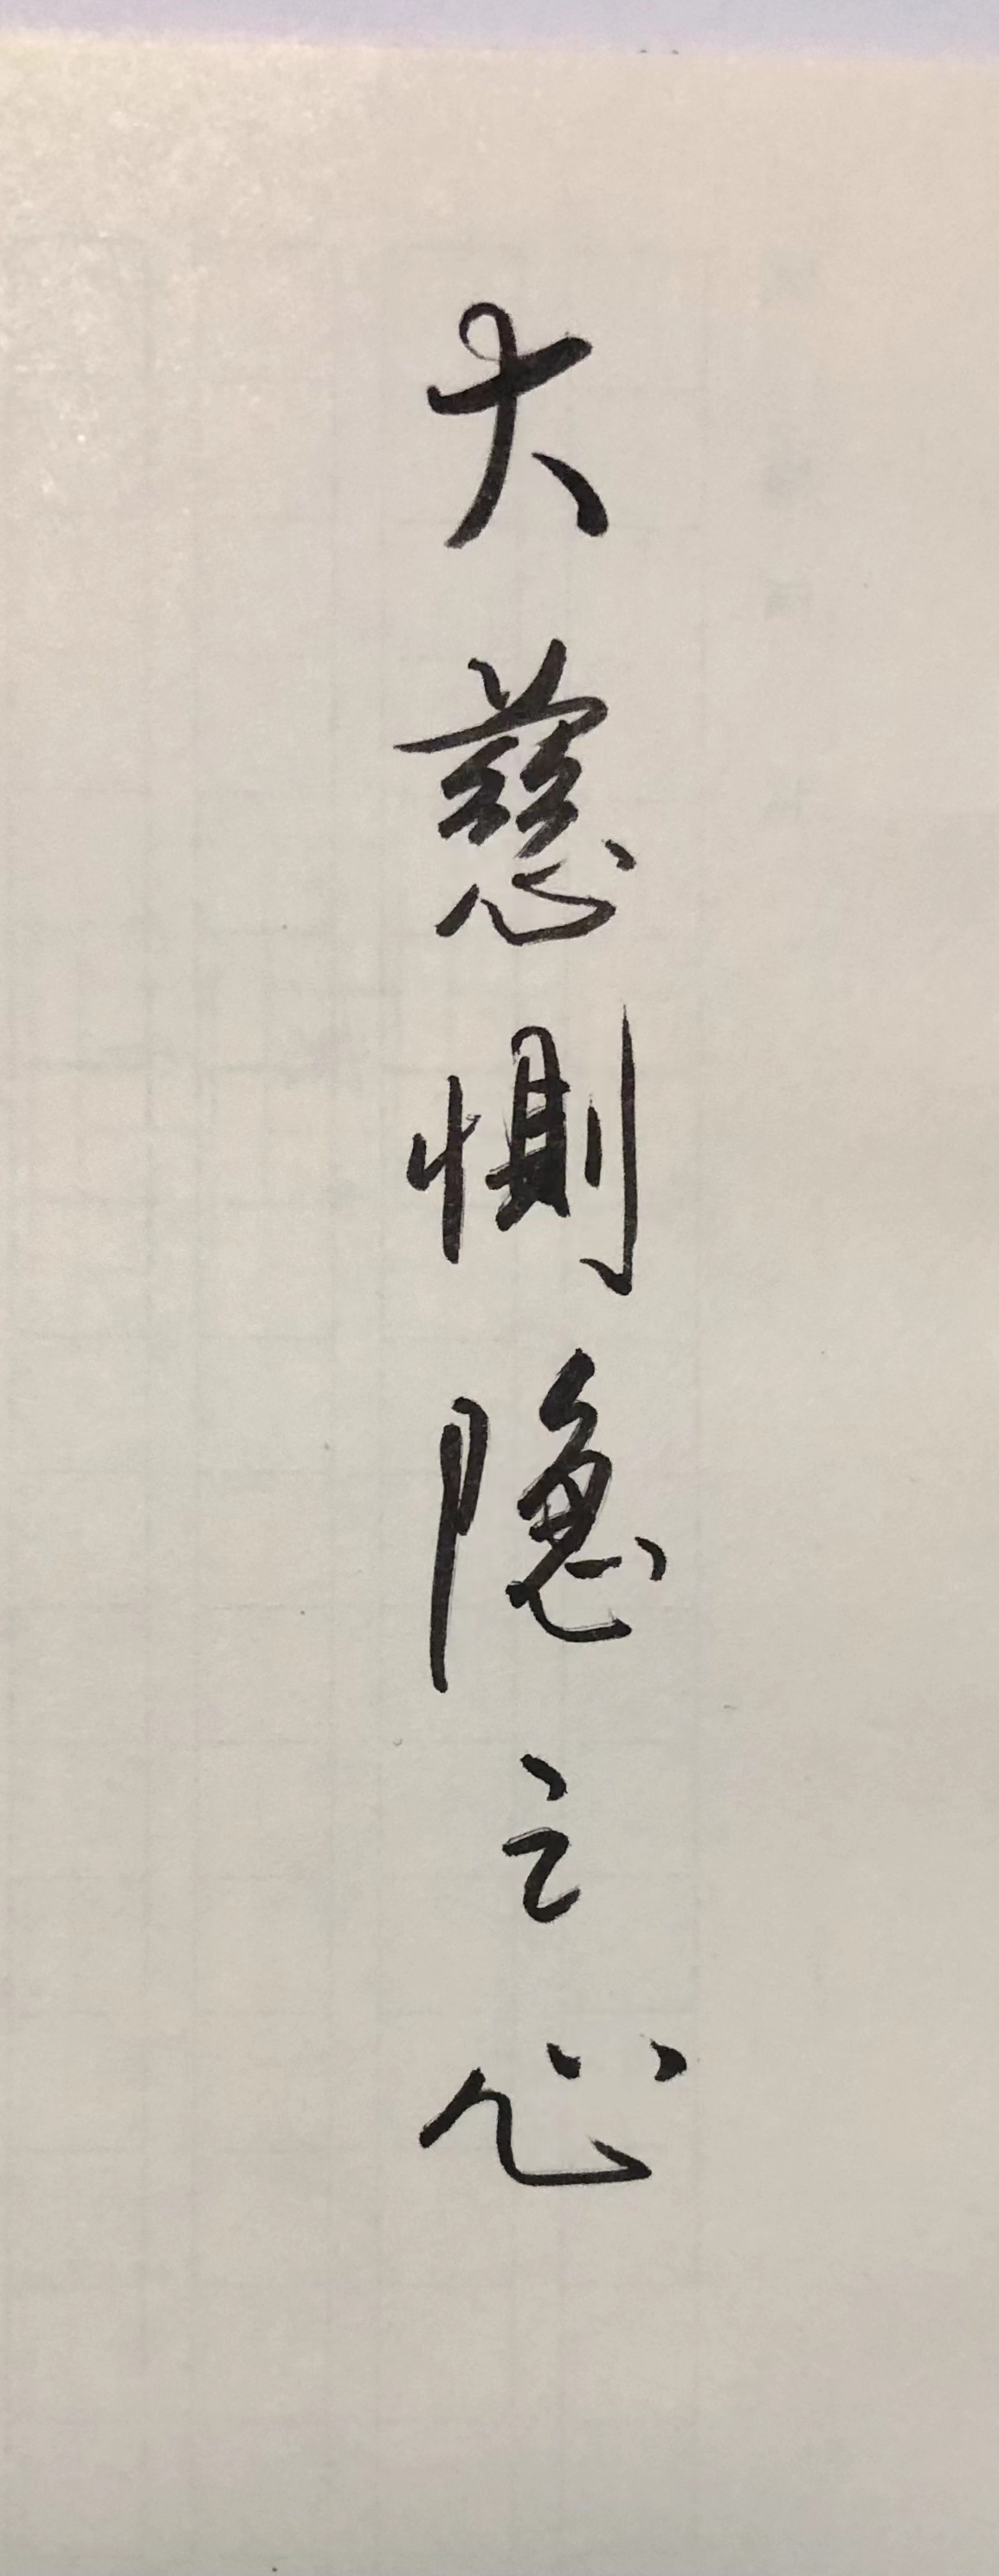 大慈恻隐之心